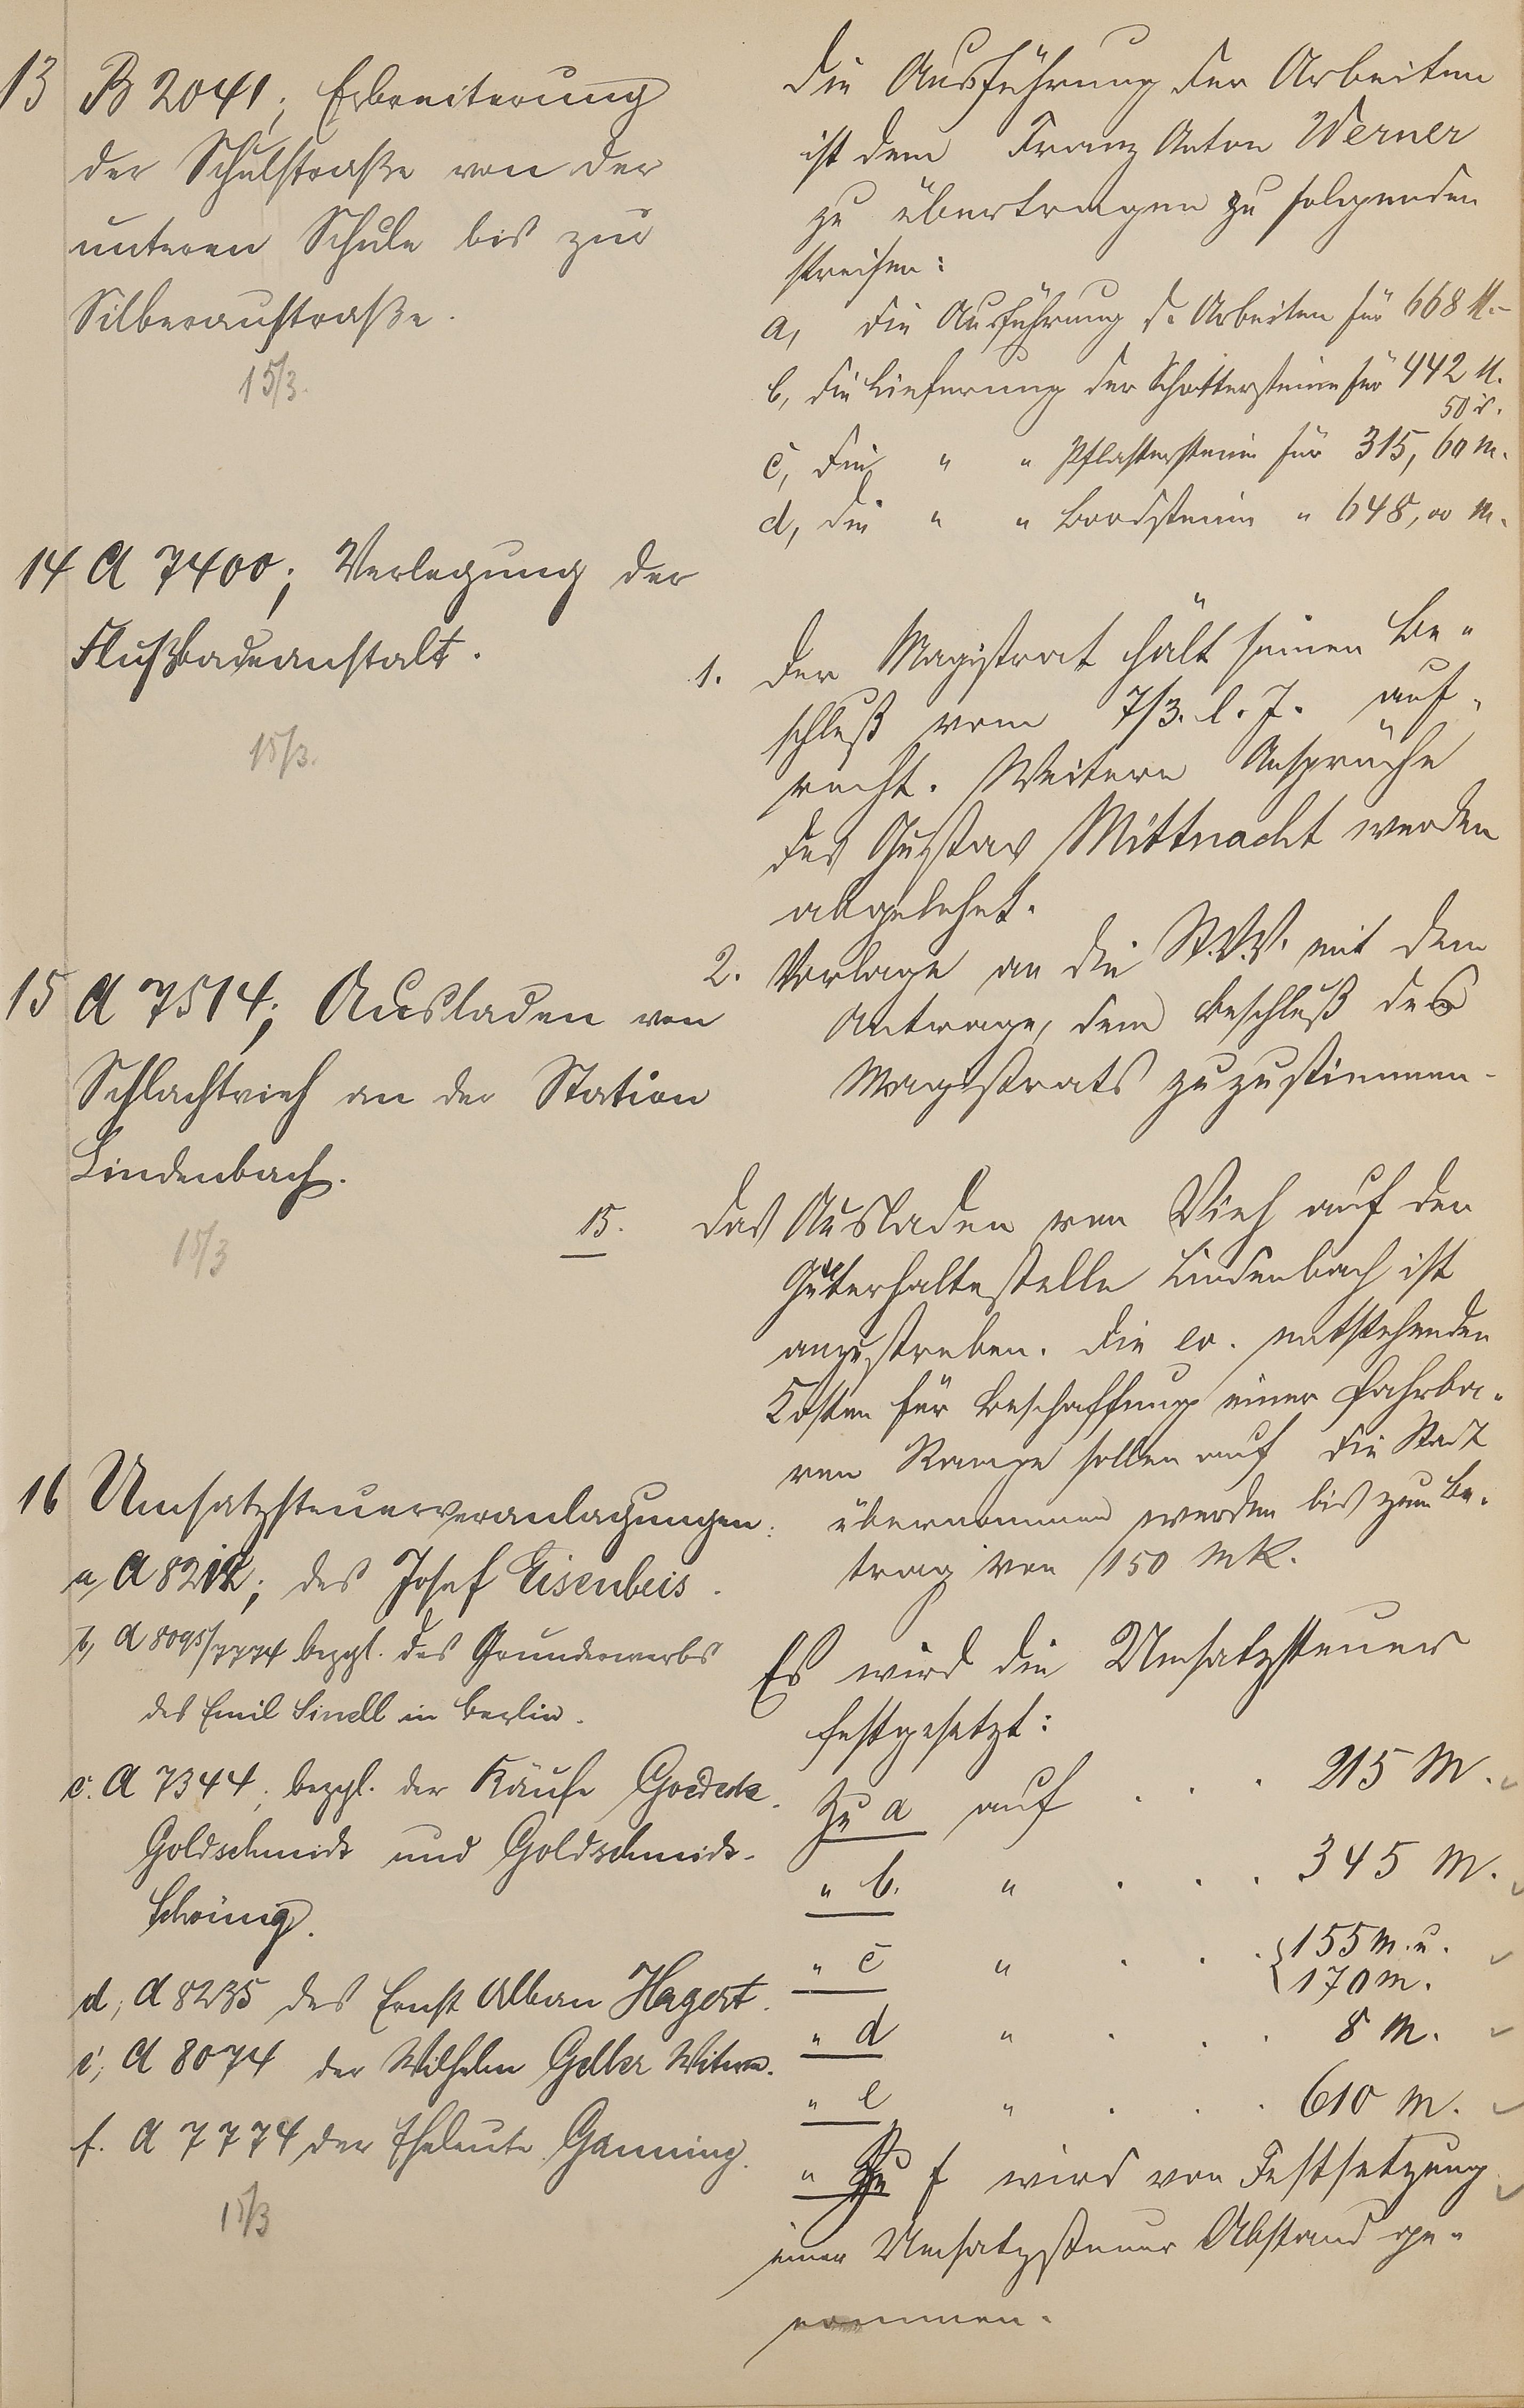 13 B 2041; Erbreiterung
der Schulstraße von der
unteren Schule bis zur
Silberaustraße.
15/3.
Die Ausführung der Arbeiten
ist dem Franz Anton Werner
zu übertragen zu folgenden
Preisen:
a, die Ausführung d. Arbeiten für 668 M.–
b, die Lieferung der Schottersteine für 442 M.
50 d.
c, die " " Pflastersteine für 315,60 M.
d, die " " Bordsteine " 648,00 M.
14 A 7400; Verlegung der
Flußbadeanstalt.
15/3.
1. Der Magistrat hält seinen Be-
schluß vom 7/3. l. J. auf-
recht. Weitere Ansprüche
des Gustav Mittnacht werden
abgelehnt.
2. Vorlage an die St.V.V. mit dem
Antrage, dem Beschluß des
Magistrats zuzustimmen.
15 A 7514; Ausladen von
Schlachtvieh an der Station
Lindenbach.
15/3
15. Das Ausladen von Vieh auf der
Güterhaltestelle Lindenbach ist
anzustreben. Die ev. entstehenden
Kosten für Beschaffung einer fahrba-
ren Rampe sollen auf die Stadt
übernommen werden bis zum Be-
trag von 150 Mk.
16 Umsatzsteuerveranlagungen:
a, A 8212; des Josef Eisenbeis.
b, A 8095/7774 bezgl. des Grunderwerbs
des Emil Sinell in Berlin.
c. A 7344; bezgl. der Käufe Goedecke-
Goldschmidt und Goldschmidt-
Schönig.
d, A 8235 des Ernst Alban Hagert.
e, A 8074 der Wilhelm Geller Witwe.
f. A 7774 der Eheleute Ganning.
15/3
Es wird die Umsatzsteuer
festgesetzt:
Zu a auf . . . 215 M.
" b. " . . . 345 M.
" c " . . . 155 M. u.
170 M.
" d " . . . 8 M.
" e " . . . 610 M.
" Zu f wird von Festsetzung
einer Umsatzsteuer Abstand ge-
nommen.